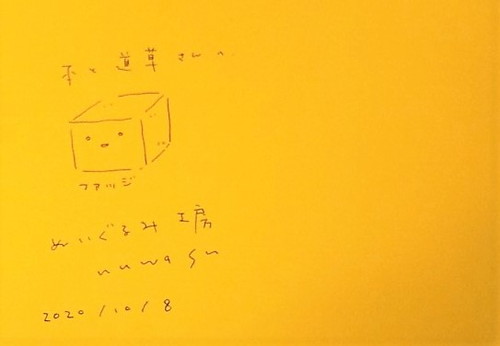 本と道草さんへ
ファッジ
ぬいぐるみ工房
nuwasu
2020/10/8